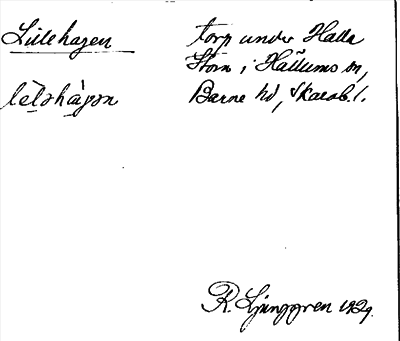 Lillehagen
torp under Halla
Storn i Hällums sn,
Barne hd, Skarab. l.
R. Ljunggren 1929.